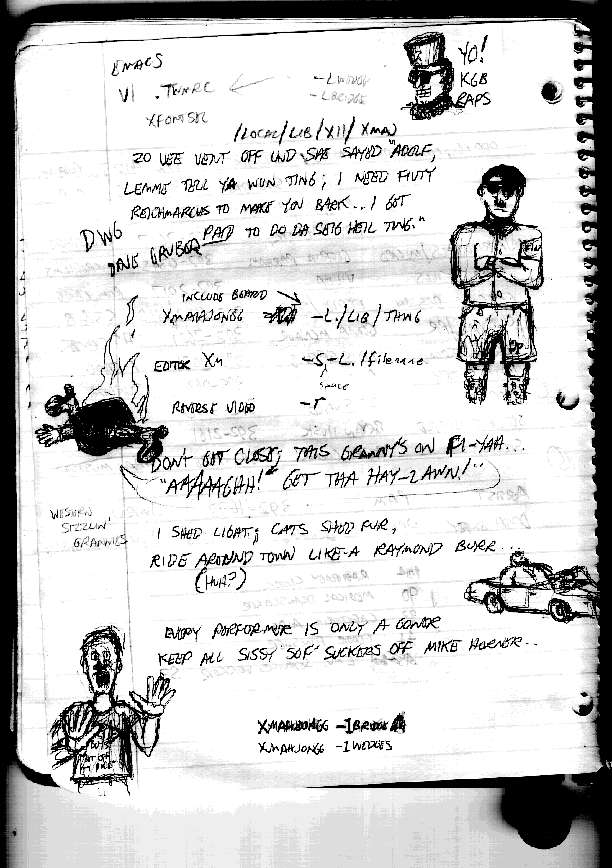 EMACS
VI .TWMRC
XFONTSEL
-LWEDGE
-LBRIDGE
YO!
KGB
RAPS
/LOCAL/LIB/X11/XMAN
ZO VEE VENT OFF UND SHE SAYED "ADOLF,
LEMME TELL YA WUN TING; I NEED FIVTY
REICHMARCUS TO MAKE YOU BARK... I GOT
PAID TO DO DA SEIG HEIL TING."
DWG
DAVE GRUBER
INCLUDE BOARD
XMAHJONGG -L./LIB/THWG
EDITOR XM -S-L./filename
space
REVERSE VIDEO -r
DON'T GET CLOSE; THIS GRANNY'S ON FI-YAA...
"AAAAAGHH!" GET THA HAY-ZAWN!"
WESTERN
SIZZLIN'
GRANNIES
I SHED LIGHT; CATS SHED FUR,
RIDE AROUND TOWN LIKE A RAYMOND BURR...
(HUH?)
EVERY PERFORMER IS ONLY A GONER
KEEP ALL SISSY "SOF" SUCKERS OFF MIKE HORNER...
XMAHJONGG -1BRIDGE
XMAHJONGG -1WEDGES